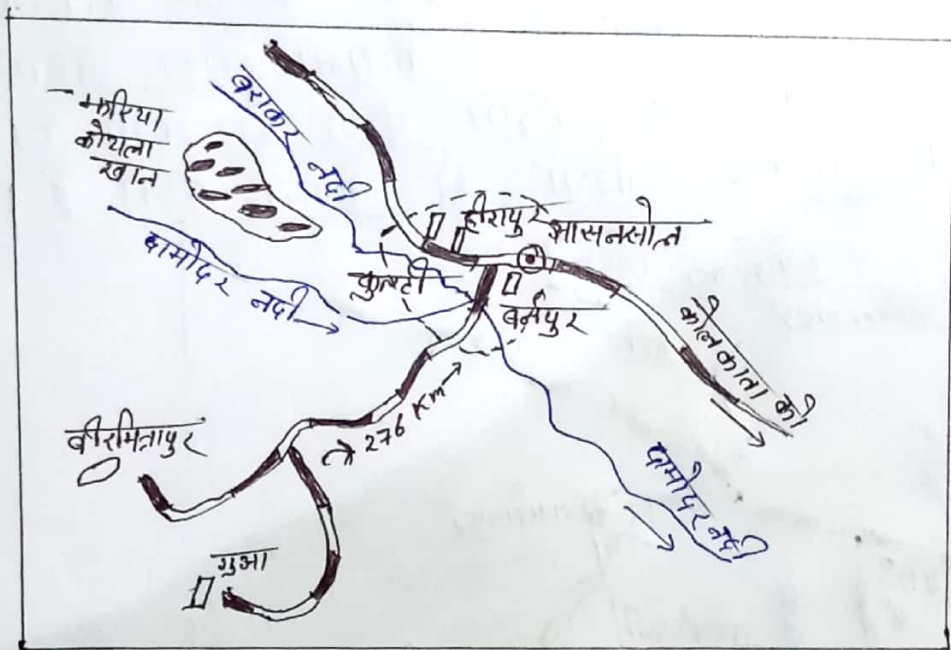 झरिया
कोयला
खान
बराकर नदी
दामोदर नदी
हीरापुर
आसनसोल
कुल्टी
बर्नपुर
कोलकाता को
276 Km
बीरमित्रापुर
गुआ
दामोदर नदी